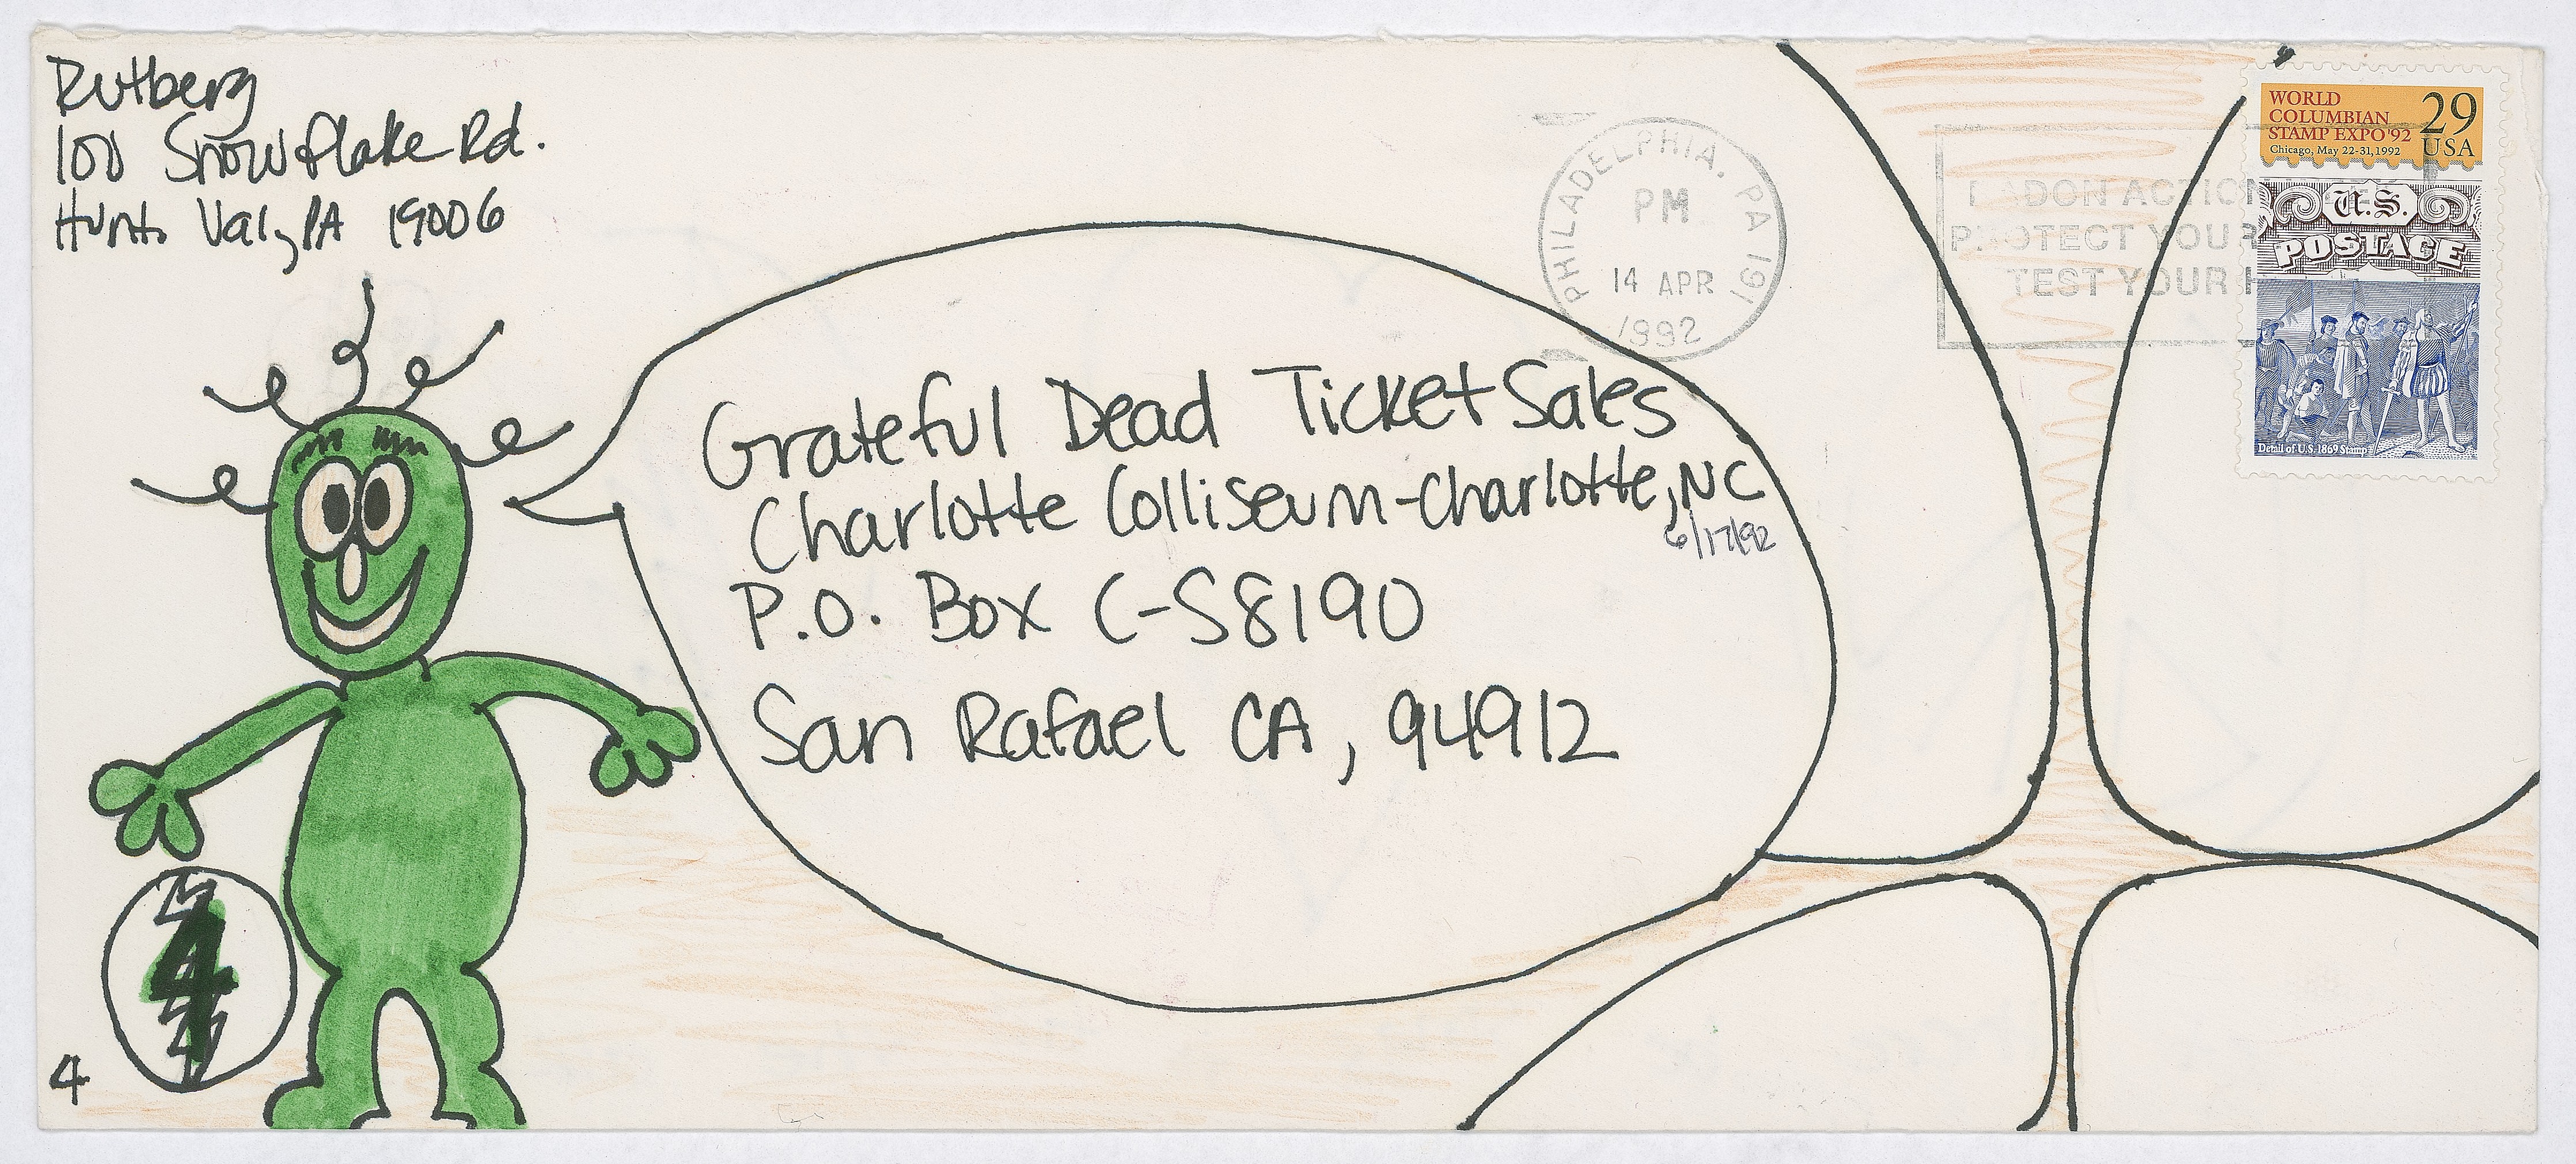 Rutberg
100 Snowflake Rd.
Hunt. Val, PA 19006
PHILADELPHIA. PA 191
PM
14 APR
1992
RADON ACTION
PROTECT YOUR
TEST YOUR H
WORLD
COLUMBIAN
STAMP EXPO '92
Chicago, May 22-31, 1992
29
USA
U.S.
POSTAGE
Detail of U.S. 1869 Stamp
Grateful Dead Ticket Sales
Charlotte Colliseum-Charlotte, NC
6/17/92
P.O. Box C-S8190
San Rafael CA, 94912
4
4